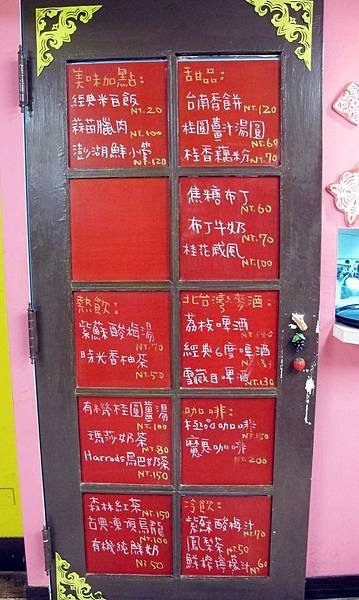 美味加點：
經典米豆飯
NT.20
蒜苗臘肉
NT.100
澎湖鮮小管
NT.120
甜品：
台南香餅
NT.120
桂圓薑汁湯圓
NT.60
桂香藕粉
NT.70
焦糖布丁
NT.60
布丁牛奶
NT.70
桂花戚風
NT.100
熱飲：
紫蘇酸梅湯
NT.70
時光香柚茶
NT.50
北台灣麥酒：
荔枝啤酒
經典6度啤酒
雪藏白啤酒
NT.130
有機桂圓薑湯
NT.100
瑪莎奶茶
NT.80
Harrods烏巴奶茶
NT.150
咖啡：
極品咖啡
NT.150
魔鬼咖啡
NT.200
森林紅茶
NT.150
古典凍頂烏龍
NT.100
有機純鮮奶
NT.50
冷飲：
紫蘇酸梅汁
NT.70
鳳梨茶
NT.50
鮮檸檬汁
NT.60